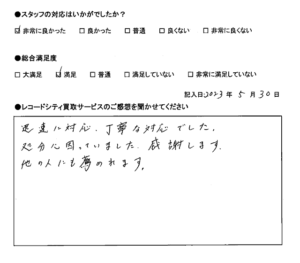 ●スタッフの対応はいかがでしたか？
☑ 非常に良かった □ 良かった □ 普通 □ 良くない □ 非常に良くない
●総合満足度
□ 大満足 ☑ 満足 □ 普通 □ 満足していない □ 非常に満足していない
記入日2023年 5月 30日
●レコードシティ買取サービスのご感想を聞かせてください
迅速に対応、丁寧な対応でした。
処分に困っていました。感謝します。
他の人にも薦めれます。